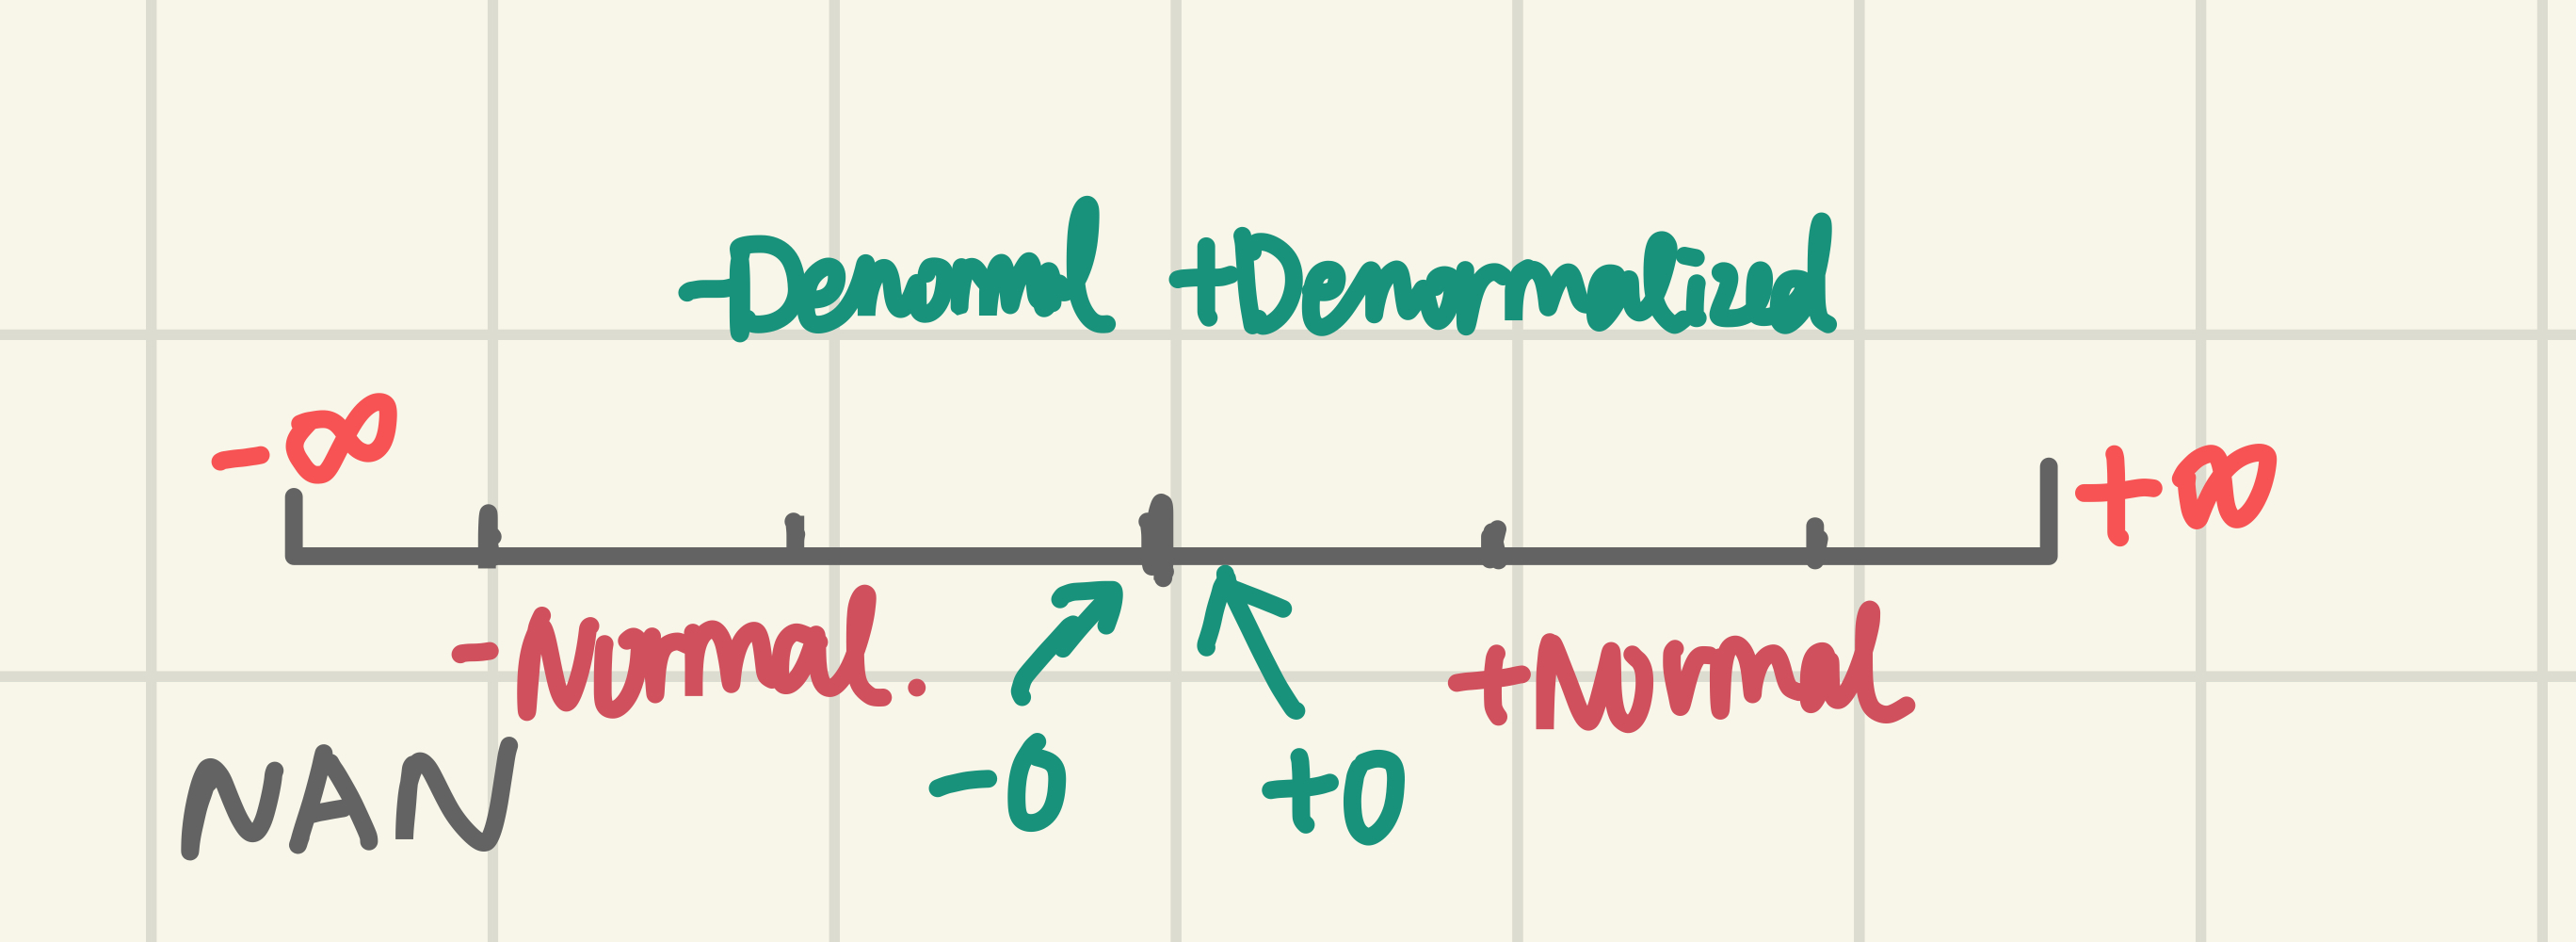 -Denomal +Denormalized
-∞ +∞
-Normal. +Normal
-0 +0
NAN